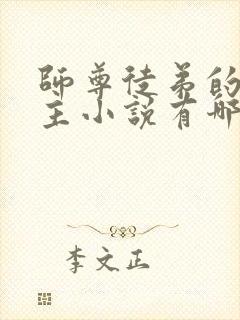 師尊徒弟的
主小說有哪
李文正